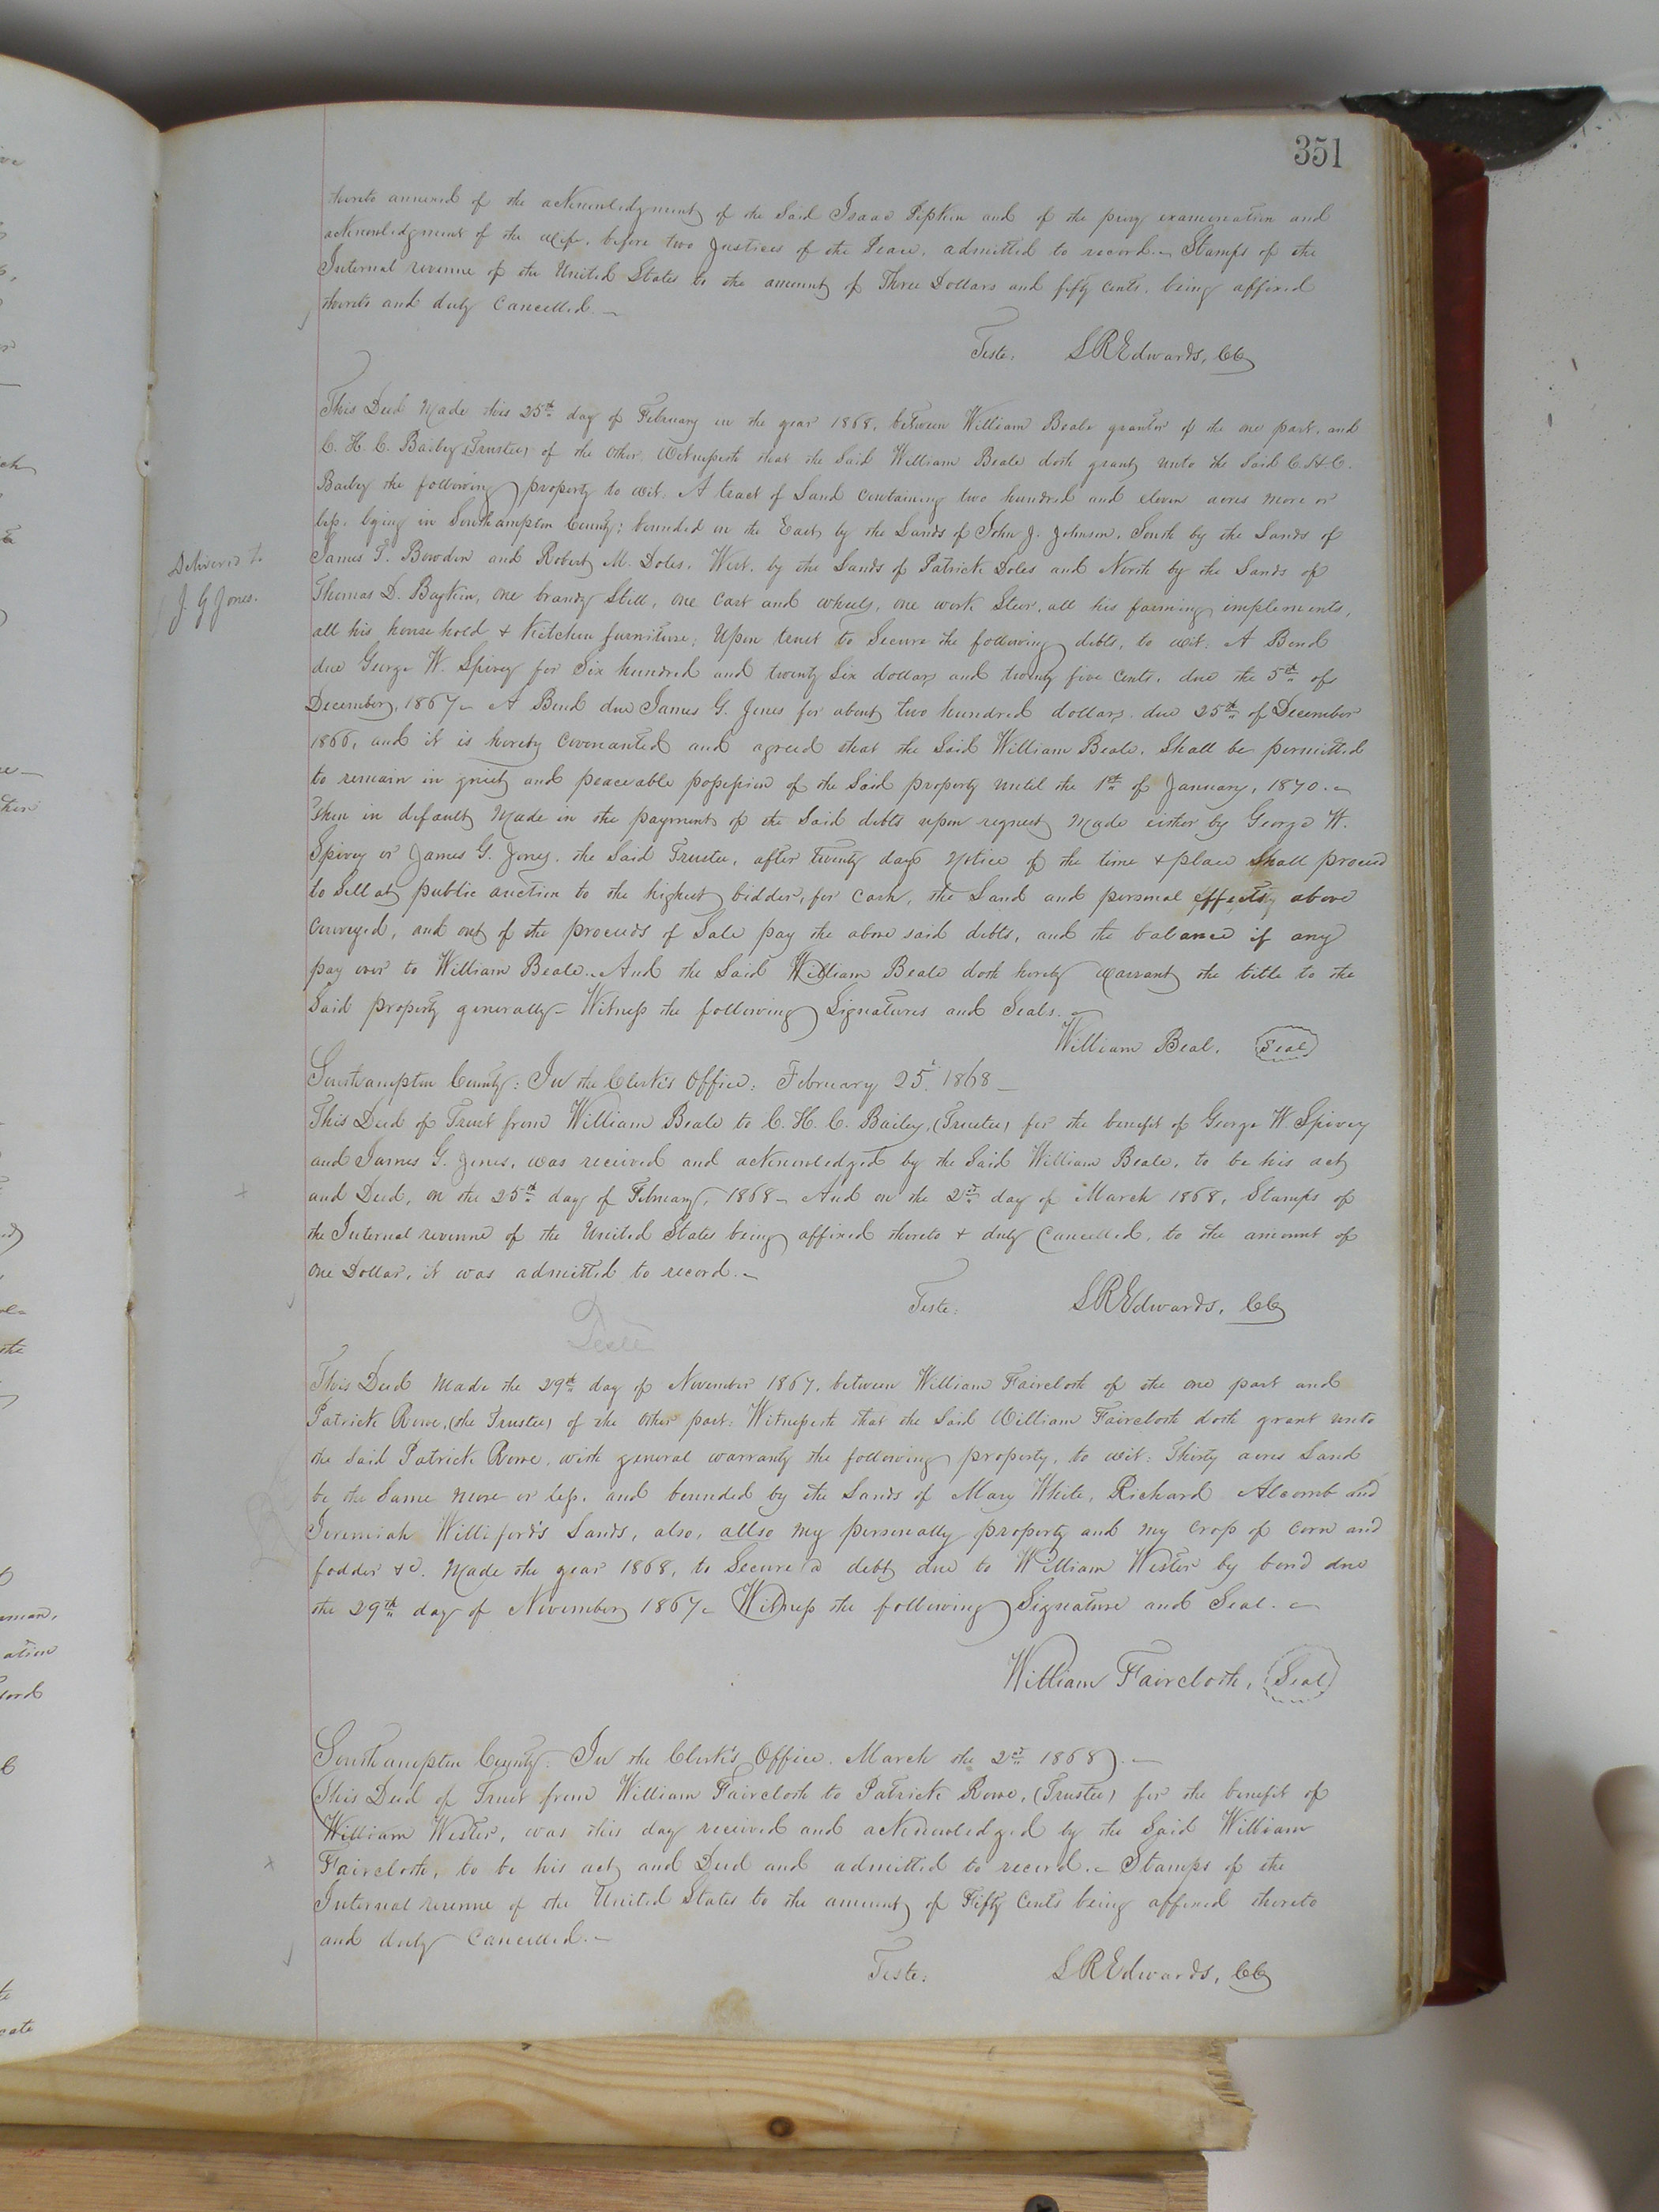 351
thereto annexed of the acknowledgment of the Said Isaac Pipkin and of the privy examination and
acknowledgment of the Wife, before two Justices of the Peace, admitted to record.- Stamps of the
Internal revenue of the United States to the amount of Three Dollars and fifty cents, being affixed
thereto and duly Cancelled.-
Teste: LREdwards, CC
This Deed Made this 25th day of February in the year 1868, between William Beale grantor of the one part, and
C. H. C. Bailey (Trustee) of the other, Witnesseth that the Said William Beale doth grant unto the Said C. H. C.
Bailey the following property to wit: A tract of Land containing two hundred and eleven acres more or
less, lying in Southampton County; bounded on the East by the Lands of John J. Johnson, South by the Lands of
James T. Bowden and Robert M. Doles, West, by the Lands of Patrick Doles and North by the Lands of
Thomas D. Boykin, one brandy Still, one Cart and wheels, one work Steer, all his farming implements,
all his household & Kitchen furniture; Upon trust to Secure the following debts, to wit: A Bond
due George W. Spivey for Six hundred and twenty Six dollars and twenty five Cents, due the 5th of
December, 1867- A Bond due James G. Jones for about two hundred dollars due 25th of December
1866, and it is hereby Covenanted and agreed that the Said William Beale, Shall be permitted
to remain in quiet and peaceable possession of the Said property until the 1st of January, 1870.-
Then in default Made in the payment of the Said debts upon request Made either by George W.
Spivey or James G. Jones, the Said Trustee, after twenty days Notice of the time & place Shall proceed
to Sell at public auction to the highest bidder, for Cash, the Land and personal effects above
Conveyed, and out of the proceeds of Sale pay the above said debts, and the balance if any
pay over to William Beale.- And the Said William Beale doth hereby Warrant the title to the
Said property generally- Witness the following Signatures and Seals.-
William Beal, Seal
Delivered to
J. G Jones.
Southampton County: In the Clerk's Office: February 25, 1868-
This Deed of Trust from William Beale to C. H. C. Bailey, (Trustee) for the benefit of George W Spivey
and James G. Jones, was received and acknowledged by the Said William Beale, to be his act
and Deed, on the 25th day of February, 1868- And on the 2nd day of March 1868, Stamps of
the Internal revenue of the United States being affixed thereto & duly Cancelled, to the amount of
One Dollar, it was admitted to record.-
Teste: LREdwards, CC
This Deed Made the 29th day of November 1867, between William Faircloth of the one part and
Patrick Rowe, (the Trustee) of the other part: Witnesseth that the Said William Faircloth doth grant unto
the Said Patrick Rowe, with general warranty the following property, to wit: Thirty acres Land
be the Same More or less, and bounded by the Lands of Mary White, Richard Alcomb and
Jeremiah Williford's Lands, also, allso My personally property and my crop of Corn and
fodder &c. Made the year 1868, to Secure a debt due to William Wester by bond due
the 29th day of November 1867- Witness the following Signature and Seal.-
William Faircloth, Seal
Southampton County: In the Clerk's Office. March the 2nd 1868.-
This Deed of Trust from William Faircloth to Patrick Rowe, (Trustee) for the benefit of
William Wester, was this day received and acknowledged by the Said William
Faircloth, to be his act and Deed and admitted to record.- Stamps of the
Internal revenue of the United States to the amount of Fifty Cents being affixed thereto
and duly Cancelled.-
Teste: LREdwards, CC